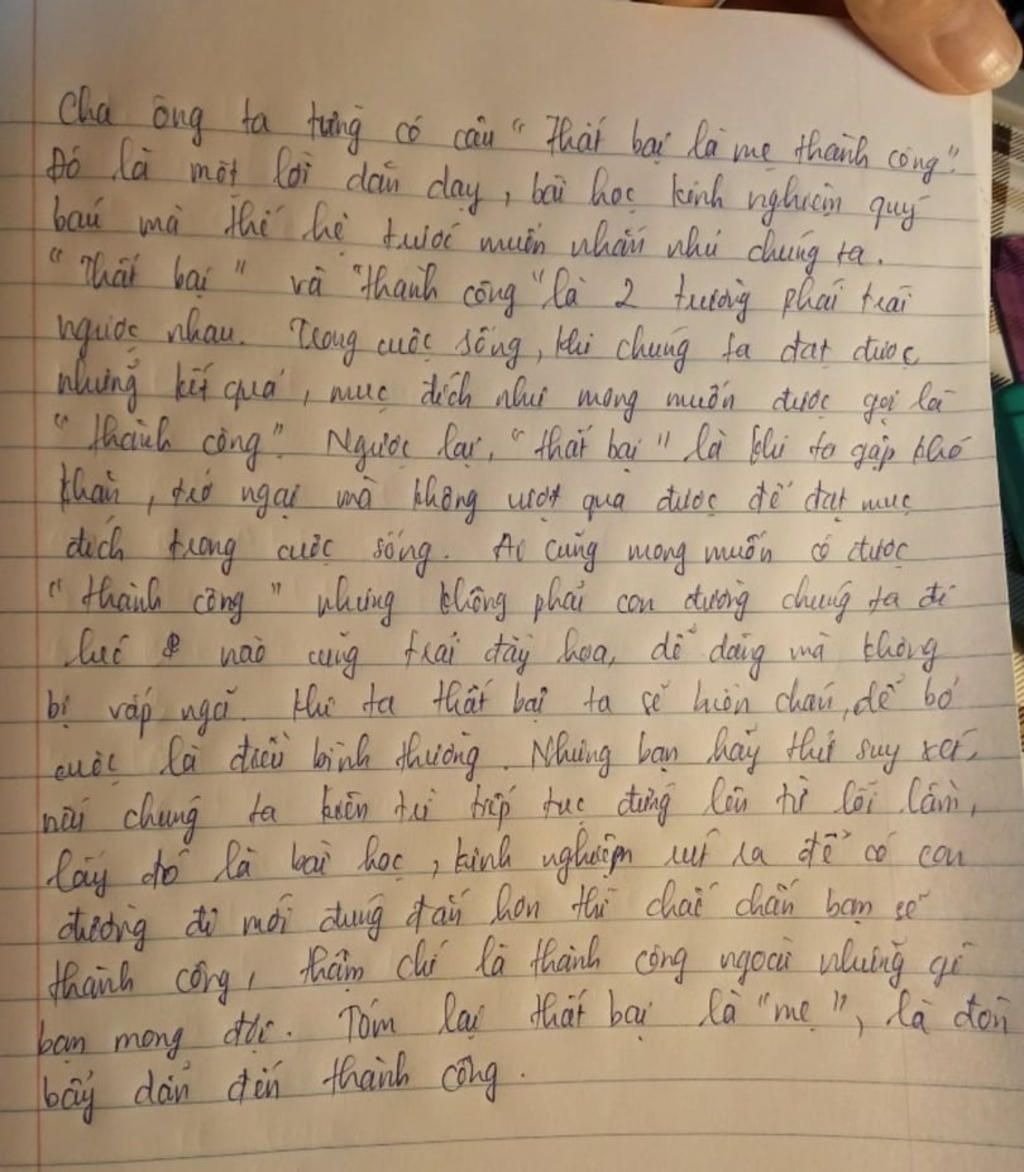 Cha ông ta từng có câu “Thất bại là mẹ thành công”.
Đó là một lời dăn dạy, bài học kinh nghiệm quý
báu mà thế hệ trước muốn nhắn nhủ chúng ta.
“Thất bại” và “thành công” là 2 trường phái trái
ngược nhau. Trong cuộc sống, khi chúng ta đạt được
những kết quả, mục đích như mong muốn được gọi là
“thành công”. Ngược lại, “thất bại” là khi ta gặp khó
khăn, trở ngại mà không vượt qua được để đạt mục
đích trong cuộc sống. Ai cũng mong muốn có được
“thành công” nhưng không phải con đường chúng ta đi
lúc nào cũng trải đầy hoa, dễ dàng mà không
bị vấp ngã. Khi ta thất bại ta sẽ nản chán, dễ bỏ
cuộc là điều bình thường. Nhưng bạn hãy thử suy xét,
nếu chúng ta kiên trì tiếp tục đứng lên từ lỗi lầm,
lấy đó là bài học, kinh nghiệm rút ra để có con
đường đi mới đúng đắn hơn thì chắc chắn bạn sẽ
thành công, thậm chí là thành công ngoài những gì
bạn mong đợi. Tóm lại thất bại là “mẹ”, là đòn
bẩy dẫn đến thành công.